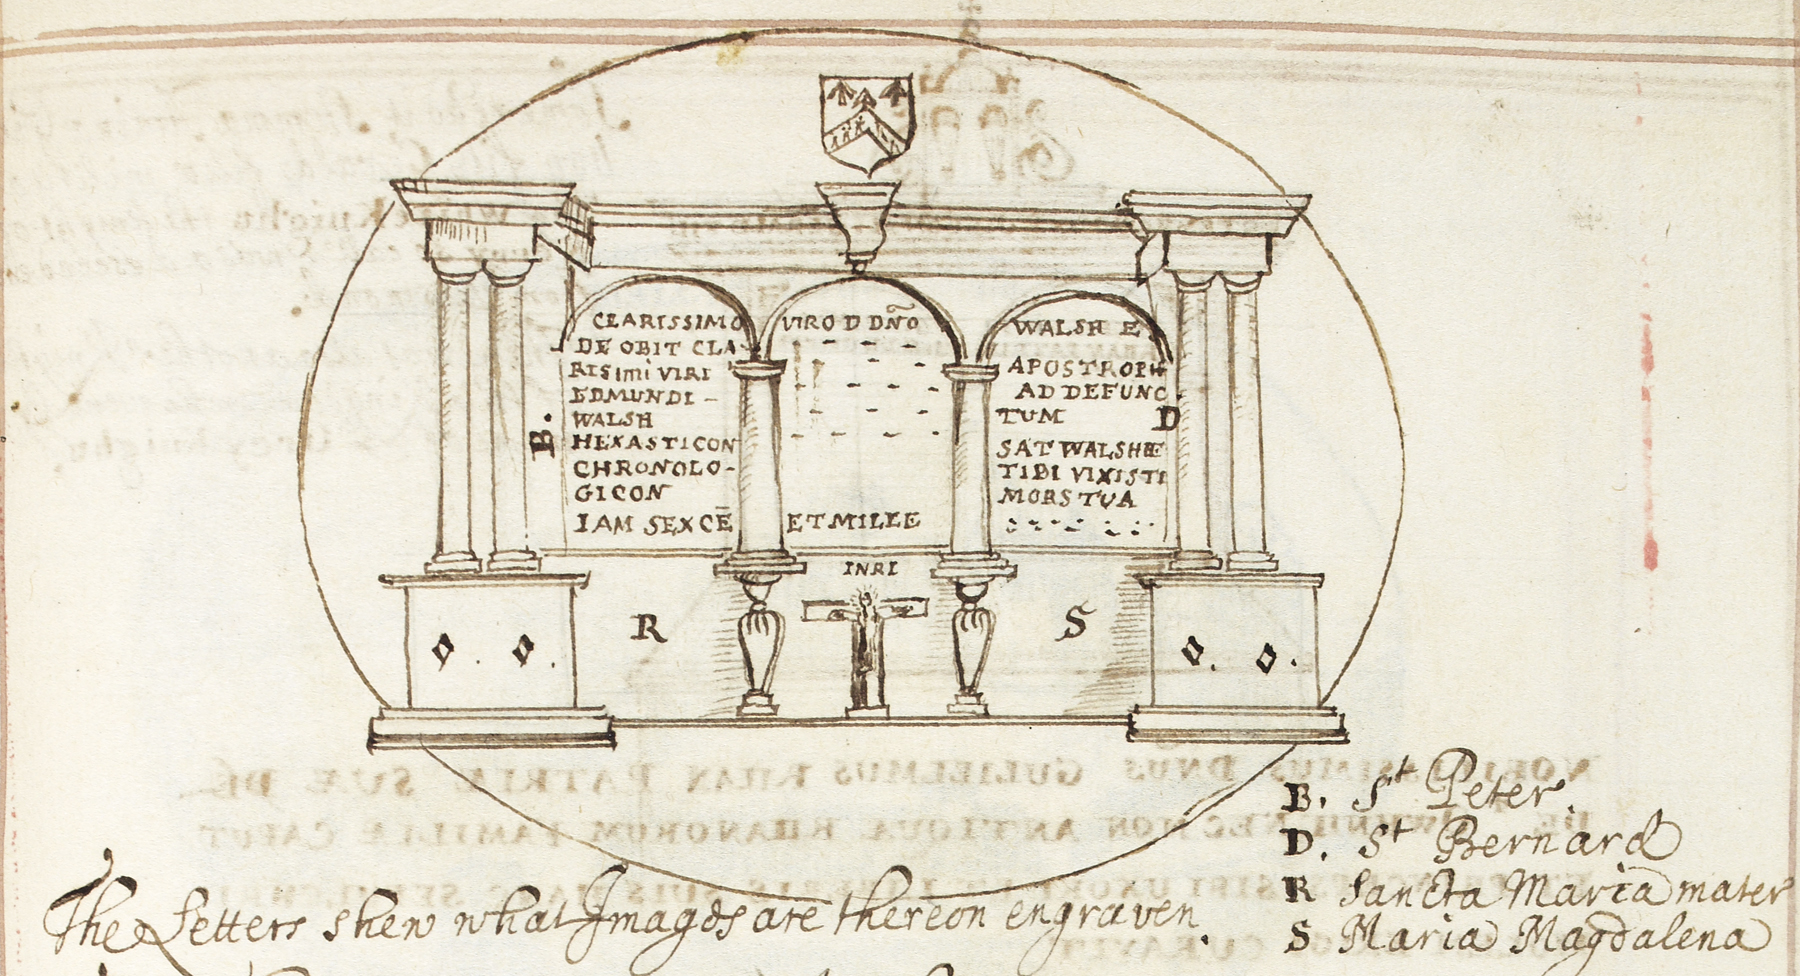 CLARISSIMO
DE OBIT CLA-
RISIMI VIRI
EDMUNDI -
WALSH
HEXASTICON
CHRONOLO-
GICON
IAM SEXCĒ
VIRO D DÑO
ET MILLE
WALSH E
APOSTROPH
AD DEFUNC
TUM
SAT WALSHÆ
TIBI VIXISTI
MORS TUA
B.
D
INRI
R
S
B. St Peter.
D. St Bernard
R Sancta Maria mater
S Maria Magdalena
The Letters shew what Images are thereon engraven.